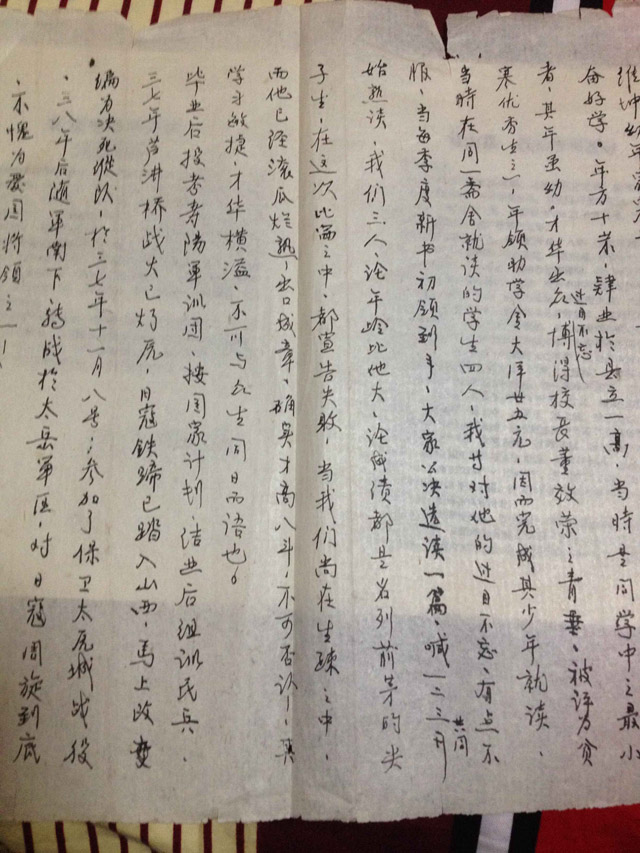 维坤幼年
奋好学。年方十茶，肆业於县立一高，当時是同学中之最小
者，其年虽幼，才华出众，过目不忘，博得校長董效荣之青垂、被评为贫
寒优秀生之一，年领助学金大洋廿五元，因而完成其少年就读、
当時在同一斋舍就读的学生四人，我等对他的过目不忘、有点不
服、当每季度新书，初领到手，大家公决选读一篇、喊一二三共同开
始熟读、我们三人、论年龄比他大、论成绩都是名列前茅的尖
子生，在这次比赛之中、都宣告失敗，当我们尚在生疎之中，
而他已经滚瓜烂熟，出口成章、确实才高八斗，不可否认，真
学才敏捷，才华横溢、不可与凡生同日而语也。
毕业后投考寿陽軍训团、按国家计划，结业后组训民兵、
三七年芦沟桥战火已灼原，日寇鉄蹄已踏入山西，馬上改变
编为决死縱队，於三七年十一月八号，参加了保卫太原城战役
、三八年后随軍南下，转战於太岳軍区，对日寇周旋到底
、不愧为爱国将领之一！